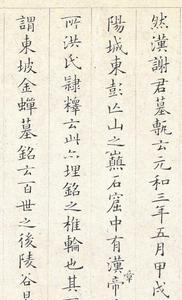 然漢謝君墓甎云元和三年五月甲戌
陽城東彭亾山之巔石窟中有漢章帝
所洪氏隸釋云此亦埋銘之椎輪也其
謂東坡金蟬墓銘云百世之後陵谷